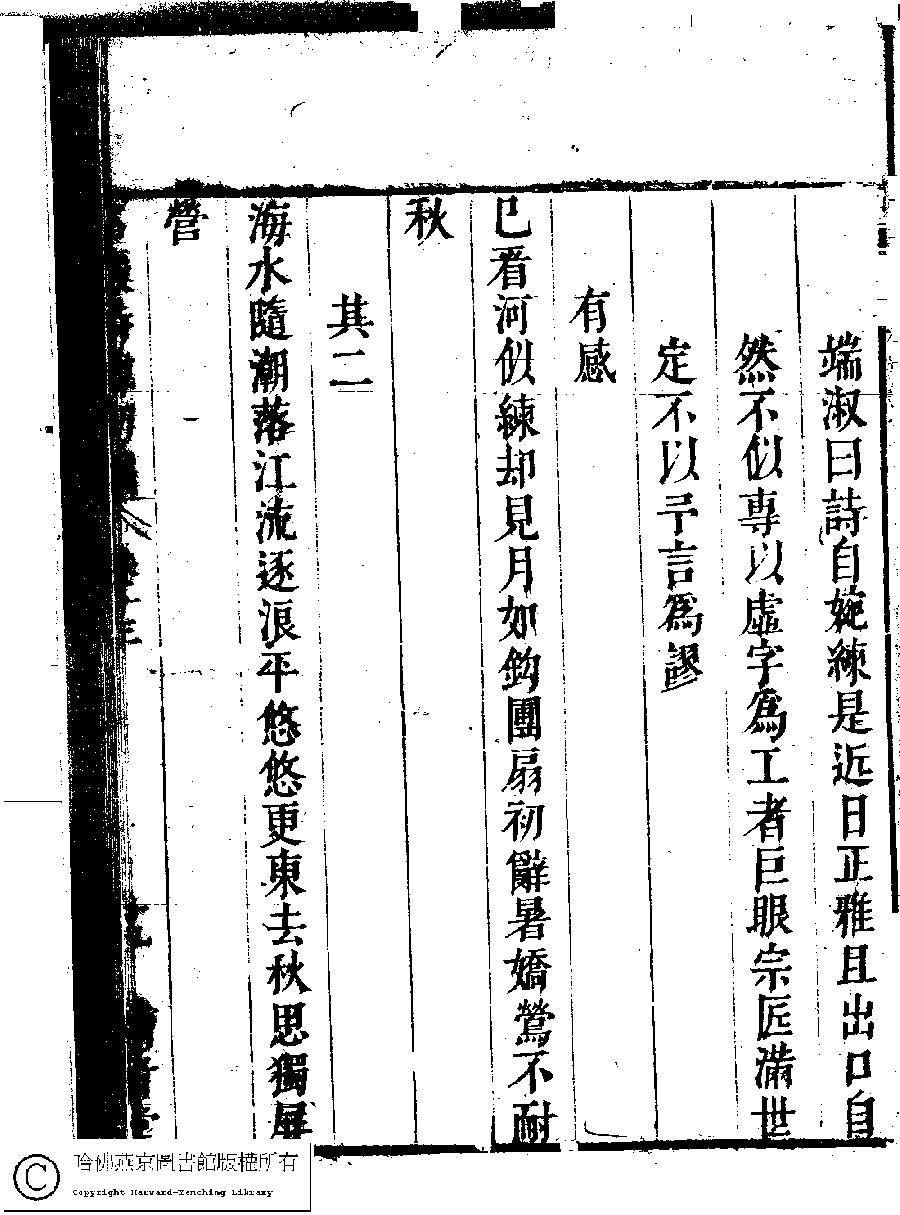 端淑曰詩自婉練是近日正雅且出口自
然不似專以虛字爲工者巨眼宗匠滿世
定不以予言爲謬
有感
已看河似練却見月如鈎團扇初辭暑嬌鶯不耐
秋
其二
海水隨潮落江流逐浪平悠悠更東去秋思獨屏
營
哈佛燕京圖書館版權所有
Copyright Harvard-Yenching Library